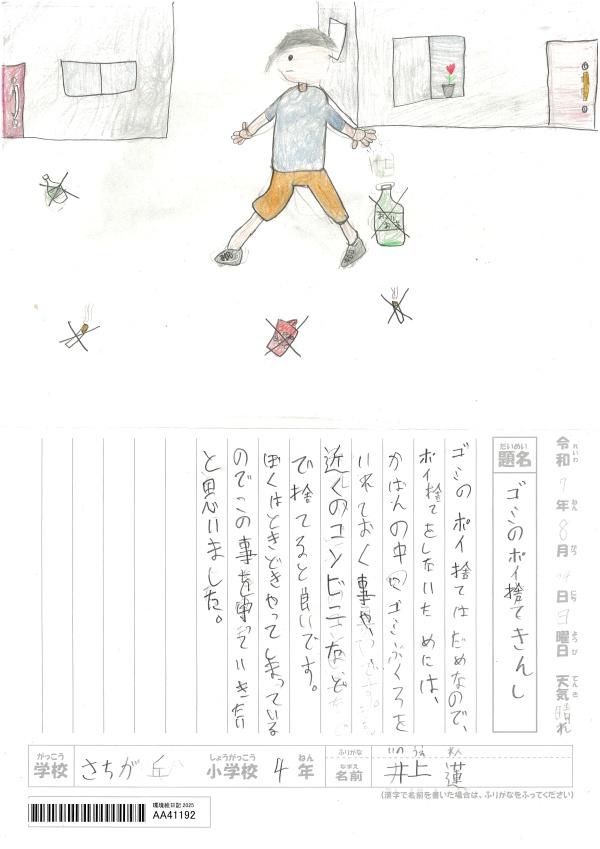 令和 れいわ 7年 ねん 8月 がつ 日 にち 日曜日 ようび 天気 てんき 晴れ
だいめい
題名 ゴミのポイ捨てきんし
ゴミのポイ捨てはだめなので、
ポイ捨てをしないためには、
かばんの中にゴミぶくろを
いれておく事や、
近くのコンビニなど
で捨てると良いです。
ぼくはときどきやってしまっている
のでこの事を守っていきたい
と思いました。
がっこう しょうがっこう ねん ふりがな いのうえ れん
学校 さちが丘 小学校 4年 なまえ 名前 井上 蓮
(漢字で名前を書いた場合は、ふりがなをふってください)
環境絵日記 2025
AA41192